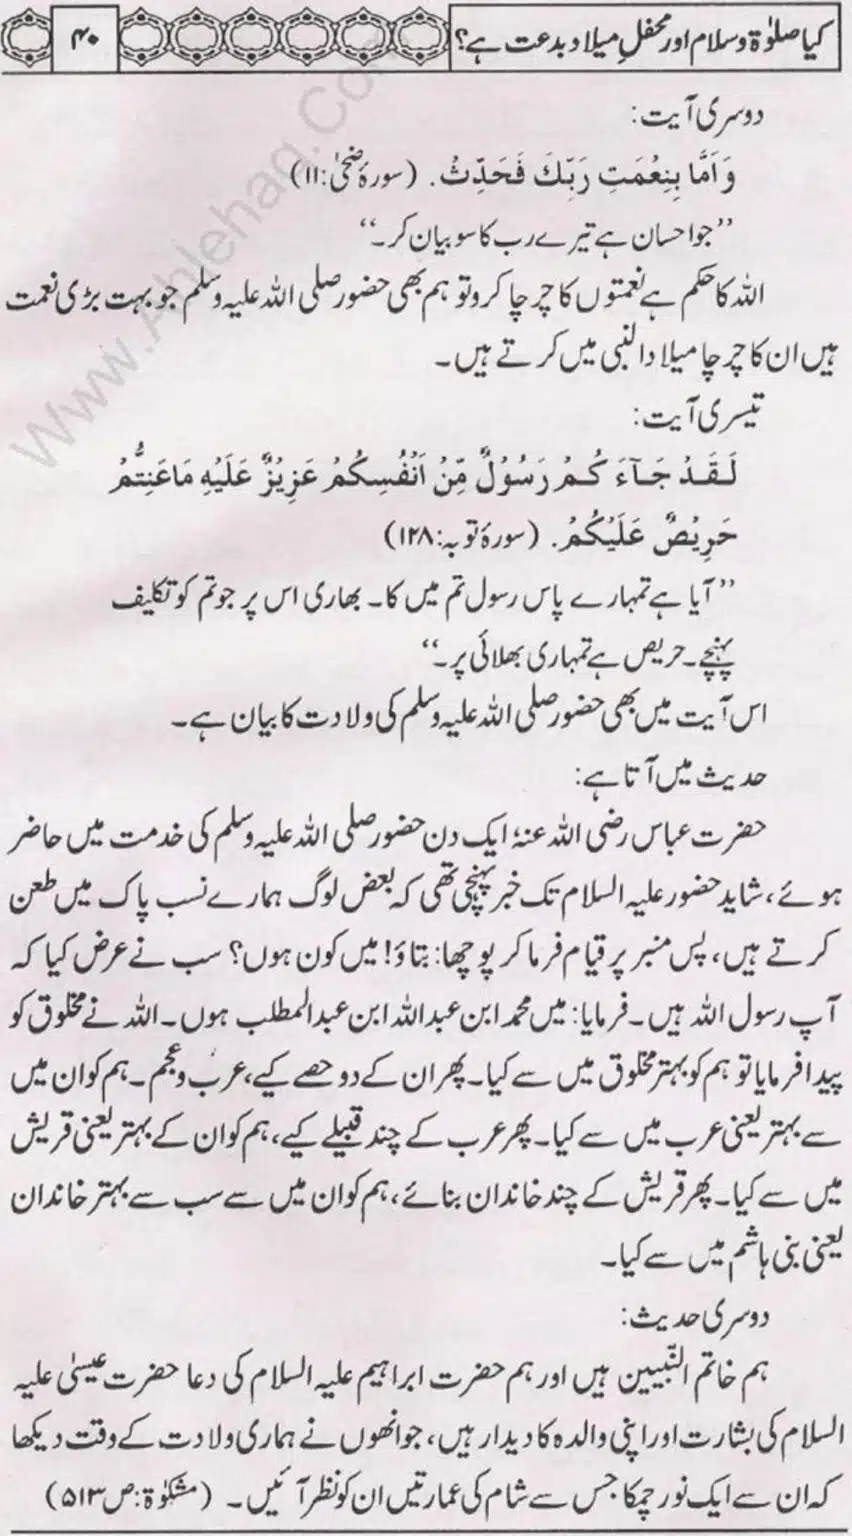 کیا صلوٰۃ و سلام اور محفلِ میلاد بدعت ہے؟
۴۰
دوسری آیت:
وَ اَمَّا بِنِعْمَتِ رَبِّكَ فَحَدِّثْ. (سورۂ ضحیٰ:۱۱)
’’جو احسان ہے تیرے رب کا سو بیان کر۔‘‘
اللہ کا حکم ہے نعمتوں کا چرچا کرو تو ہم بھی حضور صلی اللہ علیہ وسلم جو بہت بڑی نعمت
ہیں ان کا چرچا میلاد النبی میں کرتے ہیں۔
تیسری آیت:
لَقَدْ جَآءَ كُمْ رَسُوْلٌ مِّنْ اَنْفُسِكُمْ عَزِيْزٌ عَلَيْهِ مَا عَنِتُّمْ
حَرِيْصٌ عَلَيْكُمْ. (سورۂ توبہ:۱۲۸)
’’آیا ہے تمہارے پاس رسول تم میں کا۔ بھاری اس پر جو تم کو تکلیف
پہنچے۔ حریص ہے تمہاری بھلائی پر۔‘‘
اس آیت میں بھی حضور صلی اللہ علیہ وسلم کی ولادت کا بیان ہے۔
حدیث میں آتا ہے:
حضرت عباس رضی اللہ عنہٗ ایک دن حضور صلی اللہ علیہ وسلم کی خدمت میں حاضر
ہوئے، شاید حضور علیہ السلام تک خبر پہنچی تھی کہ بعض لوگ ہمارے نسب پاک میں طعن
کرتے ہیں، پس منبر پر قیام فرما کر پوچھا: بتاؤ! میں کون ہوں؟ سب نے عرض کیا کہ
آپ رسول اللہ ہیں۔ فرمایا: میں محمد ابن عبداللہ ابن عبدالمطلب ہوں۔ اللہ نے مخلوق کو
پیدا فرمایا تو ہم کو بہتر مخلوق میں سے کیا۔ پھر ان کے دو حصے کیے، عرب و عجم۔ ہم کو ان میں
سے بہتر یعنی عرب میں سے کیا۔ پھر عرب کے چند قبیلے کیے، ہم کو ان کے بہتر یعنی قریش
میں سے کیا۔ پھر قریش کے چند خاندان بنائے، ہم کو ان میں سے سب سے بہتر خاندان
یعنی بنی ہاشم میں سے کیا۔
دوسری حدیث:
ہم خاتم النّبیین ہیں اور ہم حضرت ابراہیم علیہ السلام کی دعا حضرت عیسیٰ علیہ
السلام کی بشارت اور اپنی والدہ کا دیدار ہیں، جو انھوں نے ہماری ولادت کے وقت دیکھا
کہ ان سے ایک نور چمکا جس سے شام کی عمارتیں ان کو نظر آئیں۔ (مشکوٰۃ: ص ۵۱۳)
Www.Ahlehaq.Com